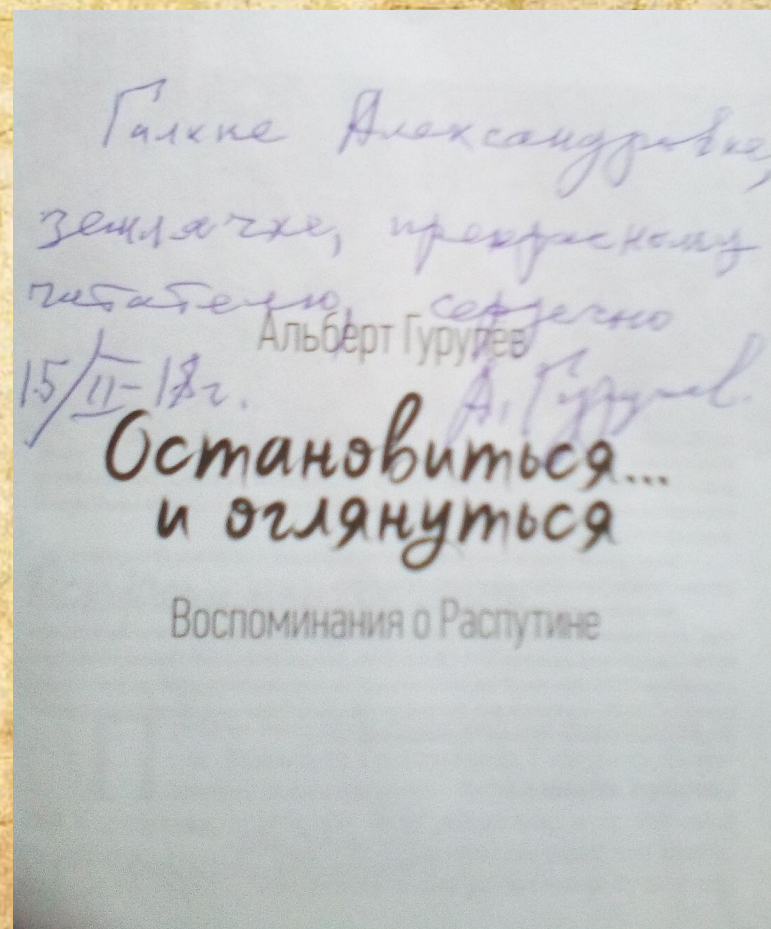 Галине Александровне,
землячке, прекрасному
читателю, сердечно
Альберт Гурулёв
15/II-18г. А. Гурулев.
Остановиться...
и оглянуться
Воспоминания о Распутине